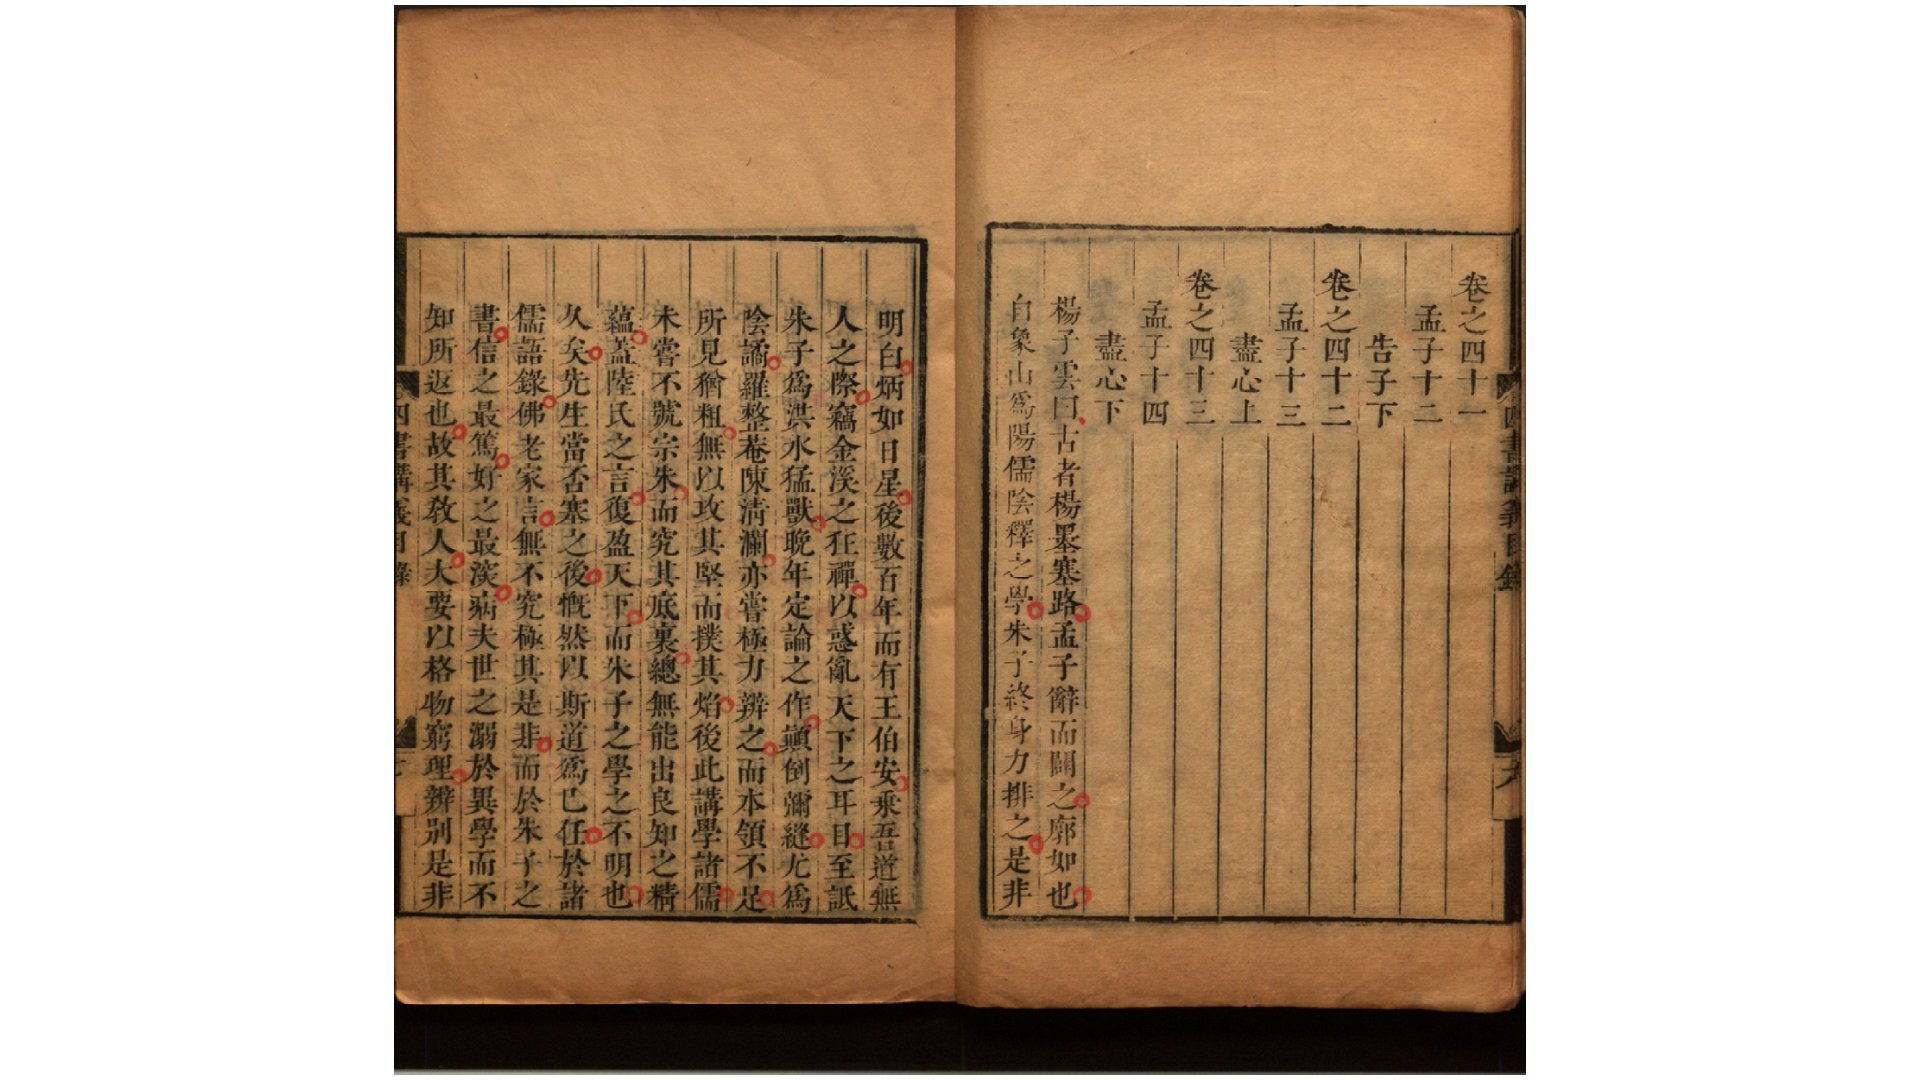 卷之四十一
孟子十二
告子下
卷之四十二
孟子十三
盡心上
卷之四十三
孟子十四
盡心下
楊子雲曰古者楊墨塞路孟子辭而闢之廓如也
自象山爲陽儒陰釋之學朱子終身力排之是非
四書講義目錄
明白炳如日星後數百年而有王伯安乗吾道無
人之際竊金溪之狂禪以惑亂天下之耳目至詆
朱子爲洪水猛獸晚年定論之作顛倒彌縫尤爲
陰譎羅整菴陳清瀾亦嘗極力辨之而本領不足
所見猶粗無以攻其堅而撲其焰後此講學諸儒
未嘗不號宗朱而究其底裏總無能出良知之精
蘊蓋陸氏之言復盈天下而朱子之學之不明也
久矣先生當否塞之後慨然以斯道爲己任於諸
儒語錄佛老家言無不究極其是非而於朱子之
書信之最篤好之最深病夫世之溺於異學而不
知所返也故其敎人大要以格物窮理辨別是非
四書講義目錄